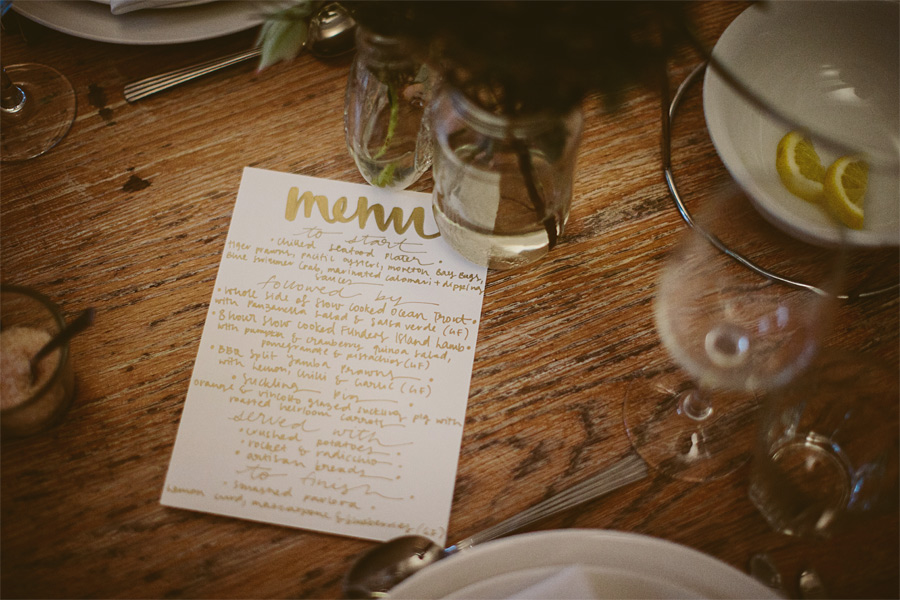 menu
to start
• chilled seafood plater •
tiger prawns, pacific oysters, moreton bay bugs,
blue swimmer crab, marinated calamari + dipping
sauces
followed by
• whole side of slow cooked Ocean Trout •
with panzanella salad & salsa verde (GF)
• 8 hour slow cooked Flinders Island lamb •
with pumpkin & cranberry quinoa salad,
pomegranate & pistachios (GF)
• BBQ split jumbo prawns •
with lemon, chilli & garlic (GF)
• suckling pig •
orange & vincotto glazed suckling pig with
roasted heirloom carrots
served with
• crushed potatoes •
• rocket & radicchio •
• artisan breads •
to finish
• smashed pavlova •
lemon curd, mascarpone &